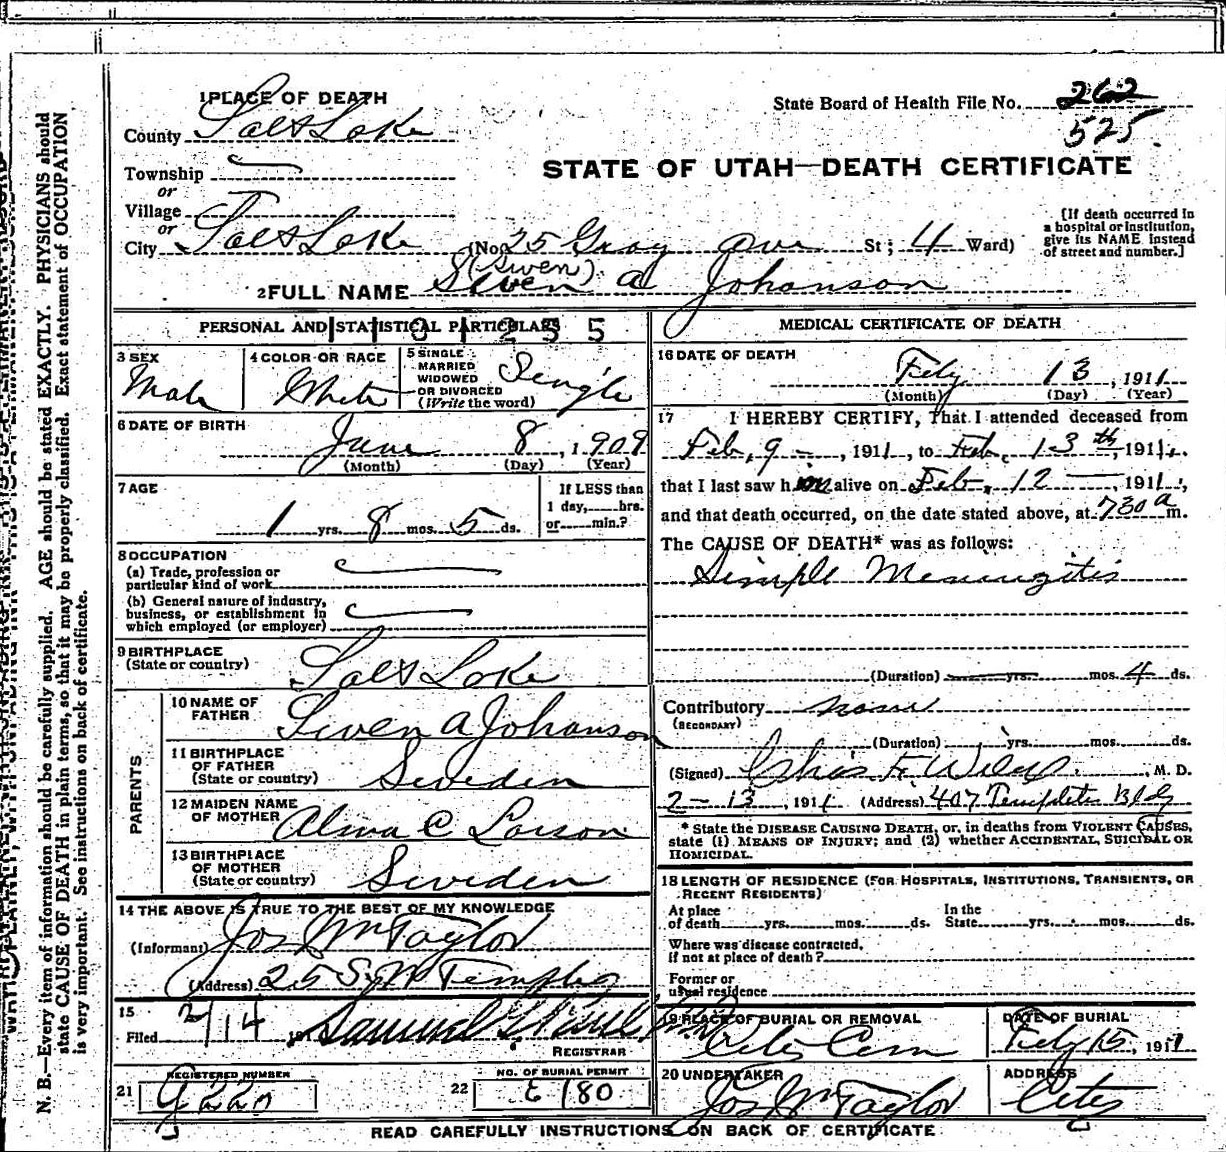 1 PLACE OF DEATH
State Board of Health File No. 262
525
County Salt Lake
STATE OF UTAH—DEATH CERTIFICATE
Township
or
Village
or
City Salt Lake (No. 25 Gray ave St; 4 Ward)
[If death occurred in a hospital or institution, give its NAME instead of street and number.]
(Swen)
2 FULL NAME Swen A Johanson
PERSONAL AND STATISTICAL PARTICULARS
1101255
3 SEX
Male
4 COLOR OR RACE
White
5 SINGLE MARRIED WIDOWED OR DIVORCED (Write the word)
Single
6 DATE OF BIRTH
June 8, 1909
(Month) (Day) (Year)
7 AGE
1 yrs. 8 mos. 5 ds.
If LESS than 1 day, hrs. or min.?
8 OCCUPATION
(a) Trade, profession or particular kind of work
(b) General nature of industry, business, or establishment in which employed (or employer)
9 BIRTHPLACE
(State or country)
Salt Lake
PARENTS
10 NAME OF FATHER
Swen A Johanson
11 BIRTHPLACE OF FATHER (State or country)
Sweden
12 MAIDEN NAME OF MOTHER
Alma C Larson
13 BIRTHPLACE OF MOTHER (State or country)
Sweden
14 THE ABOVE IS TRUE TO THE BEST OF MY KNOWLEDGE
(Informant) Jos Wm Taylor
(Address) 25 S. W Temple
15
Filed 2/14 19
REGISTRAR
REGISTERED NUMBER
21
NO. OF BURIAL PERMIT
22 E 180
MEDICAL CERTIFICATE OF DEATH
16 DATE OF DEATH
Feby 13, 1911
(Month) (Day) (Year)
17 I HEREBY CERTIFY, That I attended deceased from
Feb, 9 —, 1911, to Feb, 13th, 1911,
that I last saw him alive on Feb, 12 —, 1911,
and that death occurred, on the date stated above, at 730 a m.
The CAUSE OF DEATH* was as follows:
Simple Meningitis
(Duration) yrs. mos. 4 ds.
Contributory none
(SECONDARY)
(Duration) yrs. mos. ds.
(Signed) Chas F. , M. D.
2-13, 1911 (Address) 407 Templeton Bldg
* State the DISEASE CAUSING DEATH, or, in deaths from VIOLENT CAUSES, state (1) MEANS OF INJURY; and (2) whether ACCIDENTAL, SUICIDAL OR HOMICIDAL.
18 LENGTH OF RESIDENCE (FOR HOSPITALS, INSTITUTIONS, TRANSIENTS, OR RECENT RESIDENTS)
At place of death yrs. mos. ds.
In the State yrs. mos. ds.
Where was disease contracted, if not at place of death?
Former or usual residence
19 PLACE OF BURIAL OR REMOVAL
City Cem
DATE OF BURIAL
Feby 15, 1911
20 UNDERTAKER
Jos Wm Taylor
ADDRESS
City
READ CAREFULLY INSTRUCTIONS ON BACK OF CERTIFICATE.
N. B.—Every item of information should be carefully supplied. AGE should be stated EXACTLY. PHYSICIANS should
state CAUSE OF DEATH in plain terms, so that it may be properly classified. Exact statement of OCCUPATION
is very important. See instructions on back of certificate.